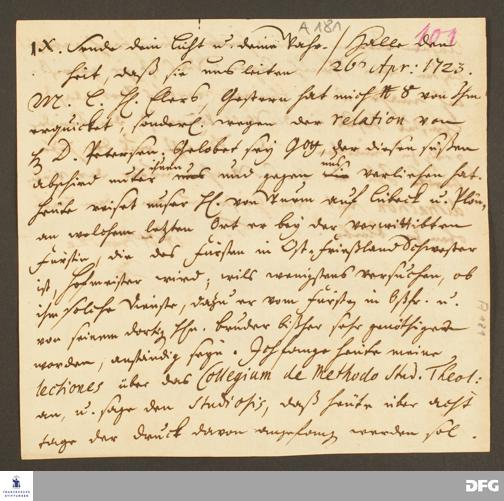 A 181
101
IX. Sende dein Licht u. deine Wahr- / Halle den
heit, daß sie uns leiten / 26 Apr: 1723.
M. L. H. Elers, Gestern hat mich # 8 von Ihm
erquicket, sonderl. wegen der relation von
H D. Petersen. Gelobet sey Gott, der diesen süßen
abschied unter ihnen und gegen uns verliehen hat.
Heute reiset unser H. von Wurm auf Lübeck u. Plön,
an welchem letzten Ort er bey der verwittibten
Fürstin, die des Fürsten in Ost-Frießland Schwester
ist, Hofmeister wird; wils wenigstens versuchen, ob
ihm solche Dienste, dazu er vom Fürsten in Ostfr. u.
von seinem dortig. Hn. Bruder bisher sehr genöthiget
worden, anständig seyn. Ich fange heute meine
lectiones über das Collegium de Methodo Stud. Theol:
an, u. sage den Studiosis, daß heute über acht
tage der Druck davon angefang werden sol.
A 181
FRANCKESCHE STIFTUNGEN
DFG